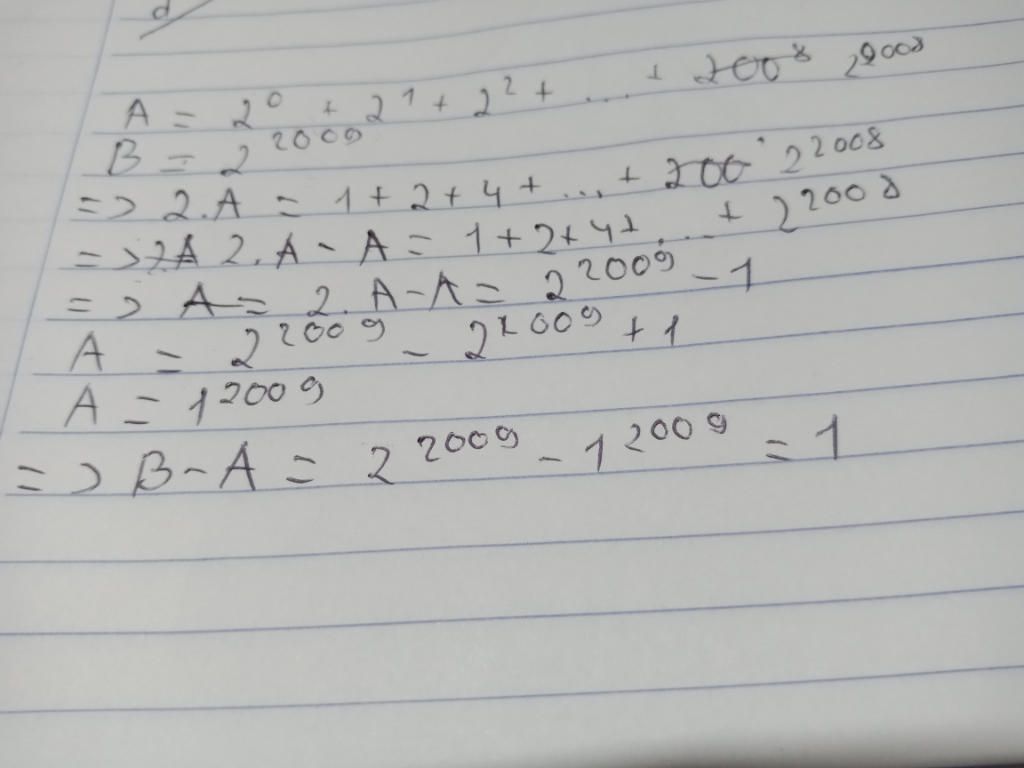 d
A = 2⁰ + 2¹ + 2² + ... + 2008 2²⁰⁰⁸
B = 2²⁰⁰⁹
=> 2.A = 1 + 2 + 4 + ... + 200 2²⁰⁰⁸
=> 2A 2.A - A = 1 + 2 + 4 + ... + 2²⁰⁰⁸
=> A = 2.A - A = 2²⁰⁰⁹ - 1
A = 2²⁰⁰⁹ - 2²⁰⁰⁹ + 1
A = 1²⁰⁰⁹
=> B - A = 2²⁰⁰⁹ - 1²⁰⁰⁹ = 1